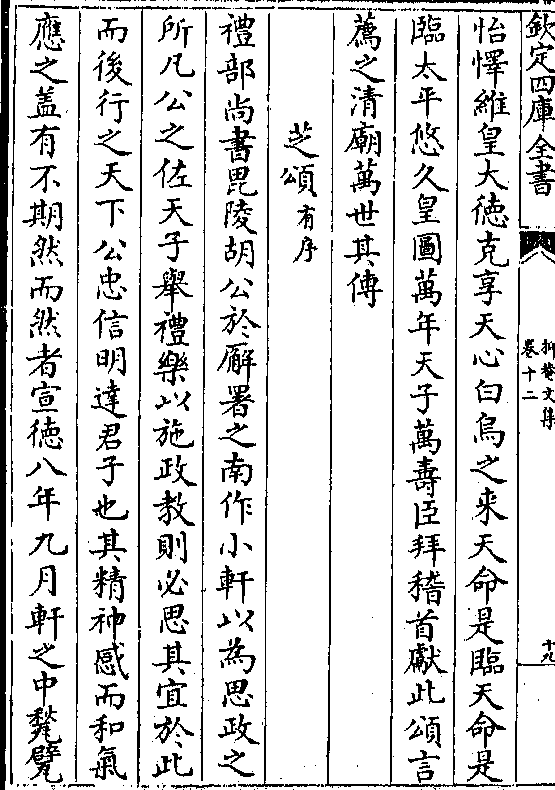 欽定四庫全書
抑菴文集
卷十二
十九
怡懌維皇大德克享天心白烏之來天命是臨天命是
臨太平悠久皇圖萬年天子萬壽臣拜稽首獻此頌言
薦之清廟萬世其傳
芝頌有序
禮部尚書毘陵胡公於廨署之南作小軒以為思政之
所凡公之佐天子舉禮樂以施政教則必思其宜於此
而後行之天下公忠信明達君子也其精神感而和氣
應之蓋有不期然而然者宣德八年九月軒之中甃甓